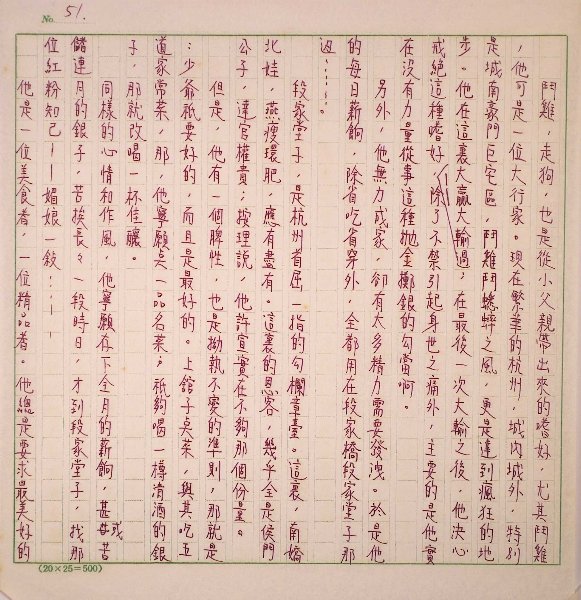 No. 51.
鬥雞，走狗，也是從小父親帶出來的嗜好，尤其鬥雞
，他可是一位大行家。現在繁華的杭州，城內城外，特別
是城南豪門巨宅區，鬥雞鬥蟋蟀之風，更是達到瘋狂的地
步。他在這裏大贏大輸過，在最後一次大輸之後，他決心
戒絕這種嗜好，除了不禁引起身世之痛外，主要的是他實
在沒有力量從事這種拋金擲銀的勾當啊。
另外，他無力成家，卻有太多精力需要發洩。於是他
的每日薪餉，除省吃省穿外，全都用在段家橋段家堂子那
邊……。
段家堂子，是杭州首屈一指的勾欄章臺。這裏，南嬌
北娃，燕瘦環肥，應有盡有。這裏的恩客，幾乎全是侯門
公子，達官權貴；按理說，他許宣實在不夠那個份量。
但是，他有一個脾性，也是拗執不變的準則，那就是
：少爺祇要好的，而且是最好的。上館子點菜，與其吃五
道家常菜，那，他寧願点一品名菜；祇夠喝一樽清酒的銀
子，那就改喝一杯佳釀。
同樣的心情和作風，他寧願存下全月的薪餉，甚或苦
儲連月的銀子，苦挨長長一段時日，才到段家堂子，找那
位紅粉知己——媚娘一敘……
他是一位美食者，一位精品者。他總是要求最美好的
(20×25=500)